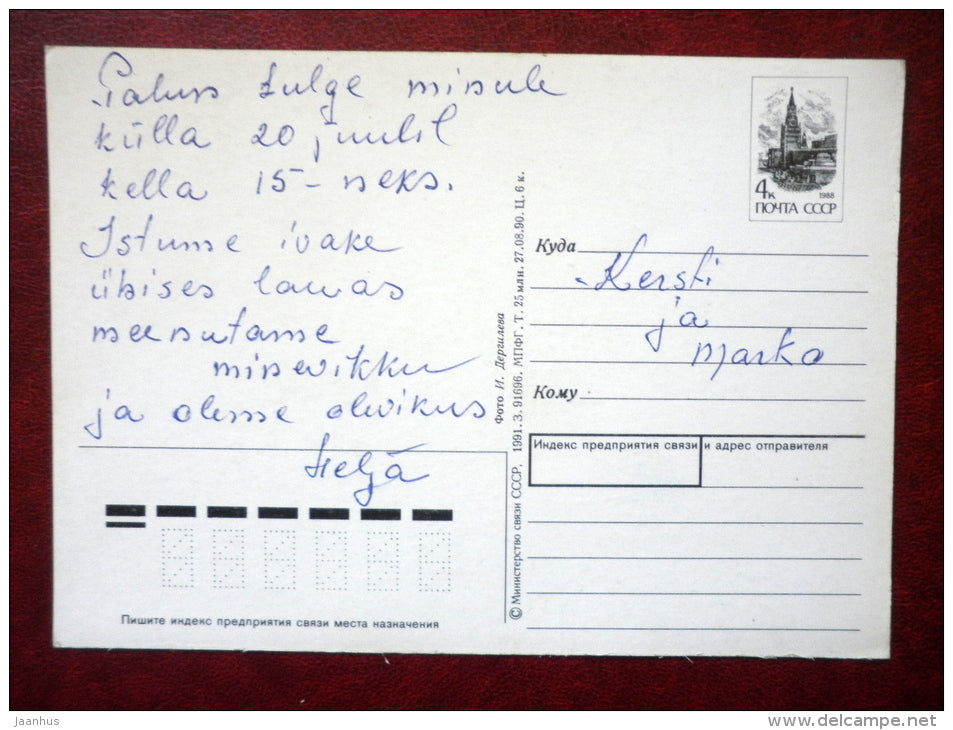 Palun tulge minule
külla 20 juulil
kella 15-neks.
Istume ivake
ühises lauas
meenutame
minevikku
ja oleme olevikus
Heljä
4к
1988
ПОЧТА СССР
Куда
Kersti
ja
Marko
Кому
Индекс предприятия связи и адрес отправителя
Фото И. Дергилева
© Министерство связи СССР, 1991. З. 91696. МПФГ. Т. 25 млн. 27.08.90. Ц. 6 к.
Пишите индекс предприятия связи места назначения
jaanhus
www.delcampe.net